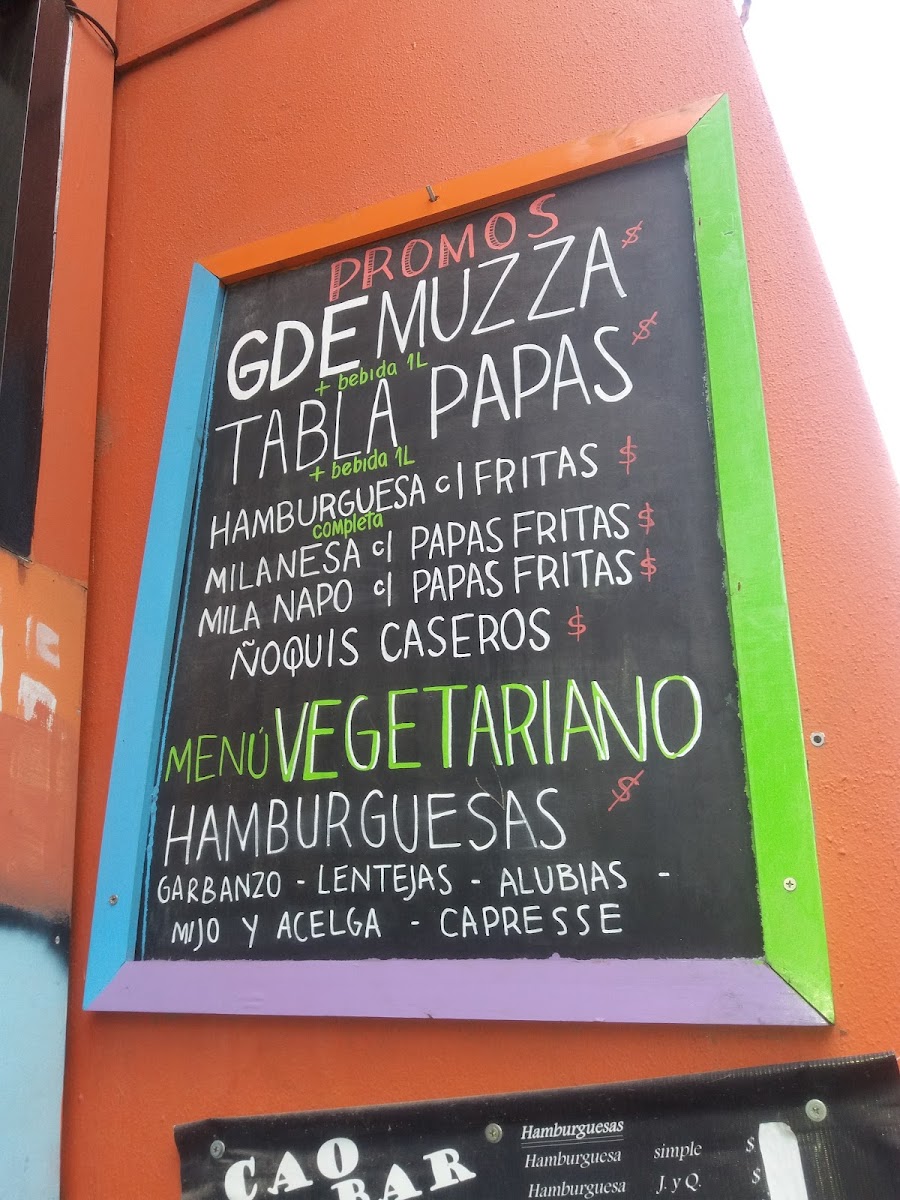 PROMOS
GDE MUZZA $
+ bebida 1L
TABLA PAPAS $
+ bebida 1L
HAMBURGUESA c/ FRITAS $
completa
MILANESA c/ PAPAS FRITAS $
MILA NAPO c/ PAPAS FRITAS $
ÑOQUIS CASEROS $
MENÚ VEGETARIANO
HAMBURGUESAS $
GARBANZO - LENTEJAS - ALUBIAS -
MIJO Y ACELGA - CAPRESSE
CAO
BAR
Hamburguesas
Hamburguesa simple $
Hamburguesa J. y Q. $